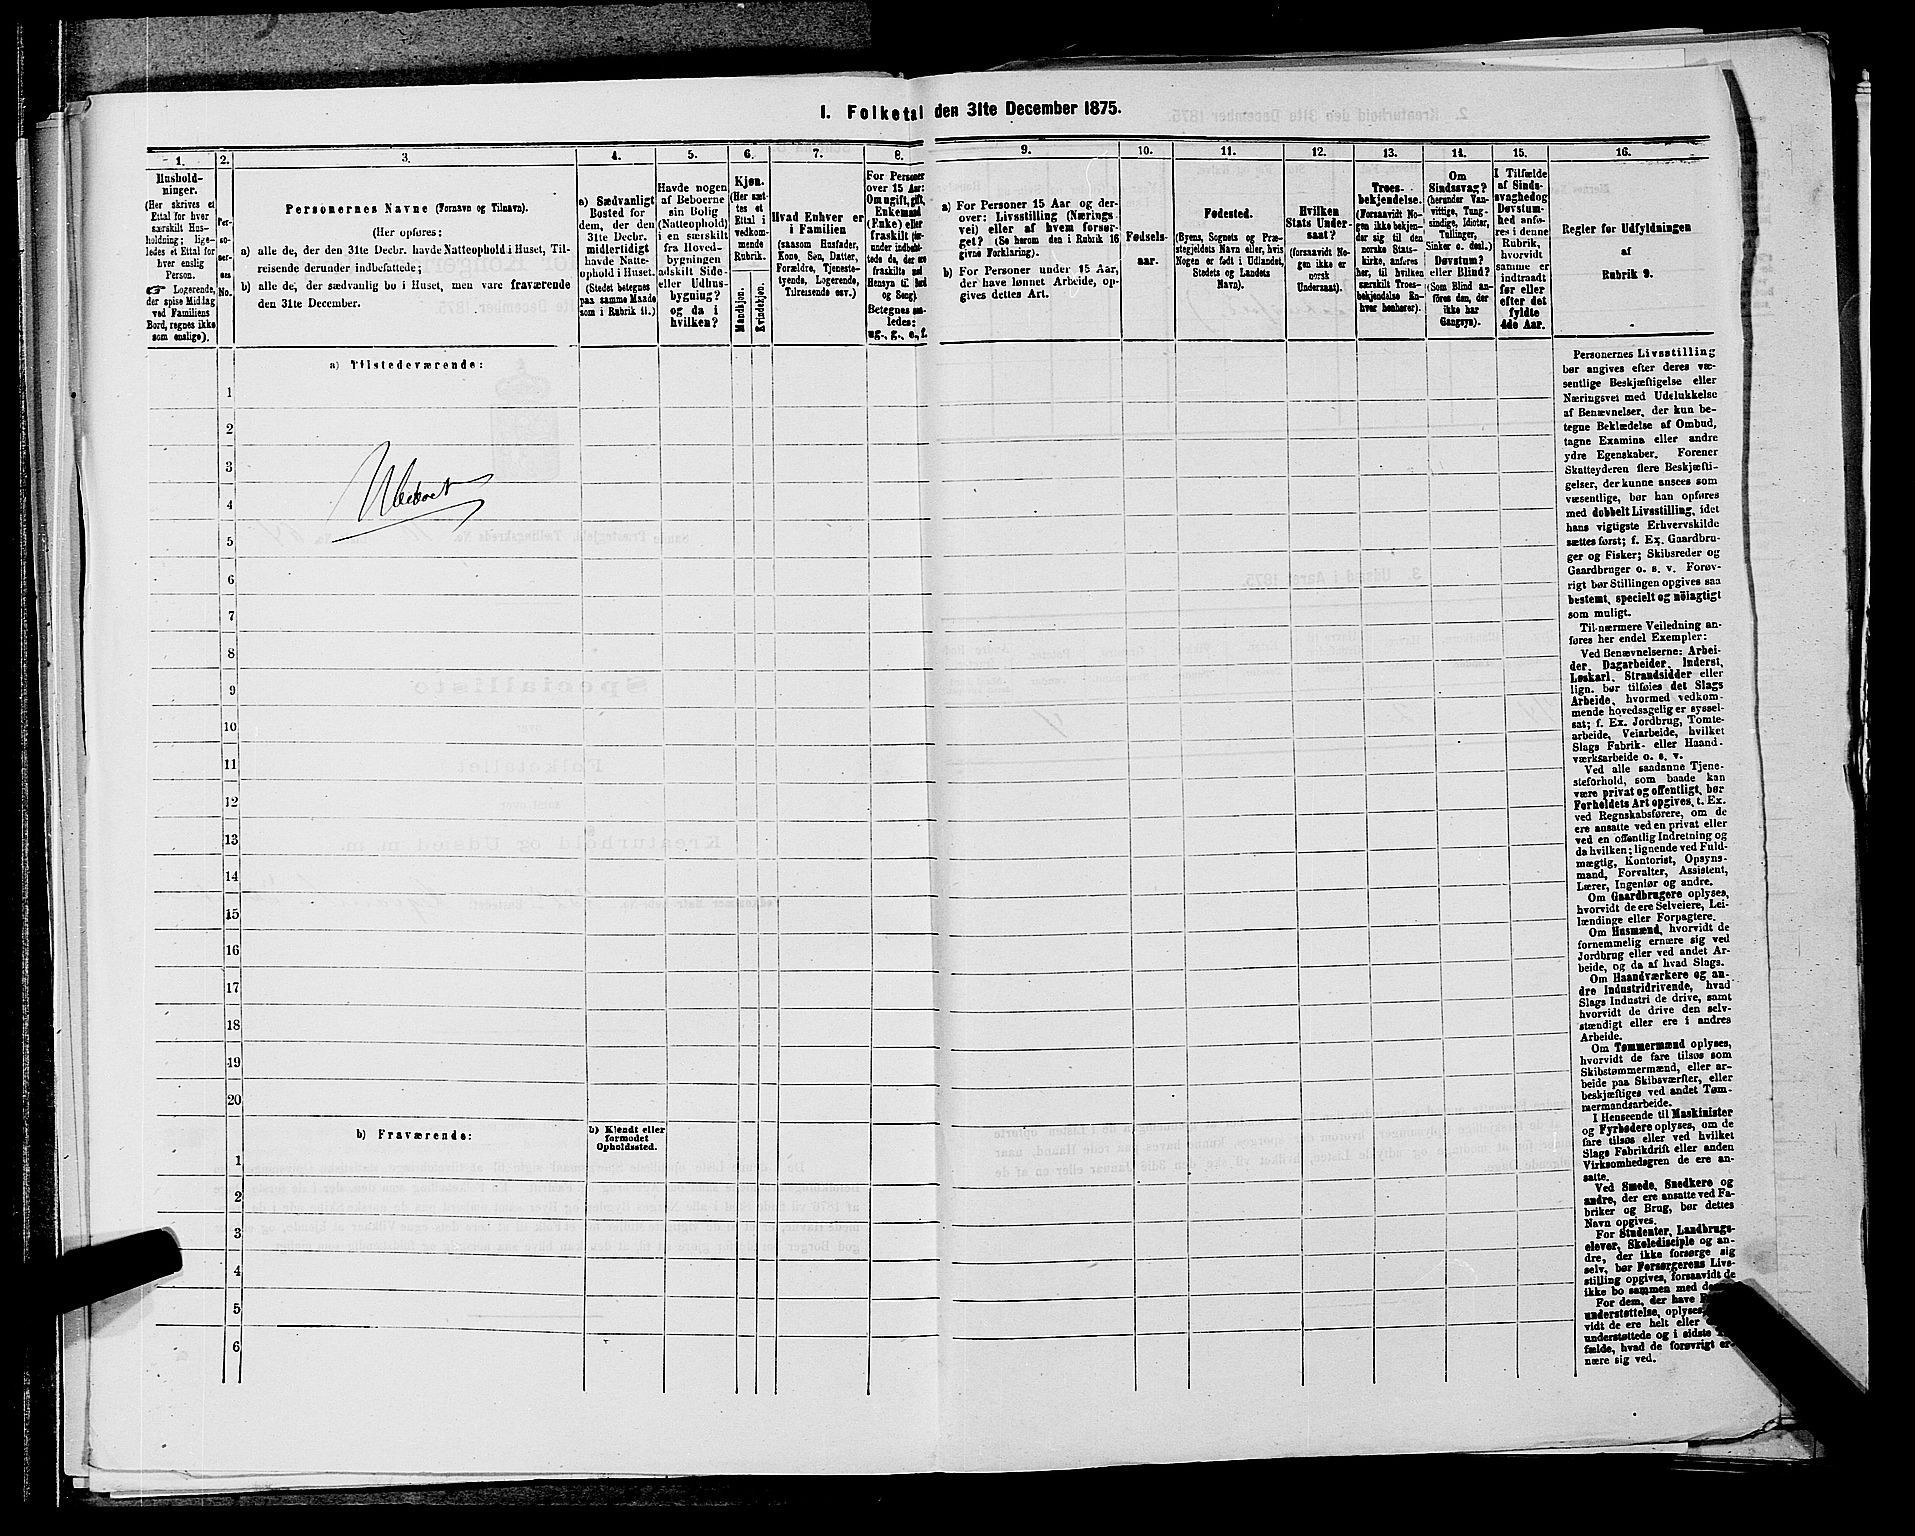 1. Folketal den 31te December 1875.
1.
2.
3.
4.
5.
6.
7.
8.
9.
10.
11.
12.
13.
14.
15.
16.
Hushold-
ninger.
(Her skrives et
Ettal for hver
særskilt Hus-
holdning; lige-
ledes et Ettal for
hver enslig
Person.
☞ Logerende,
der spise Middag
ved Familiens
Bord, regnes ikke
som enslige).
Per-
so-
ner-
nes
No.
Personernes Navne (Fornavn og Tilnavn).
(Her opføres:
a) alle de, der den 31te Decbr. havde Natteophold i Huset, Til-
reisende derunder indbefattede;
b) alle de, der sædvanlig bo i Huset, men vare fraværende
den 31te December.
a) Sædvanligt
Bosted for
dem, der den
31te Decbr.
midlertidigt
havde Natte-
ophold i Huset.
(Stedet betegnes
paa samme Maade
som i Rubrik 11.)
Havde nogen
af Beboerne
sin Bolig
(Natteophold)
i en særskilt
fra Hoved-
bygningen
adskilt Side-
eller Udhus-
bygning?
og da i
hvilken?
Kjøn.
(Her sæt-
tes et
Ettal i
vedkom-
mende
Rubrik.
Mandkjøn.
Kvindekjøn.
Hvad Enhver er
i Familien
(saasom Husfader,
Kone, Søn, Datter,
Forældre, Tjeneste-
tyende, Logerende,
Tilreisende osv.)
For Personer
over 15 Aar:
Om ugift, gift,
Enkemand
(Enke) eller
fraskilt (her-
under indbefat-
tede de, der ere
fraskilte med
Hensyn til Bord
og Seng)
Betegnes saa-
ledes:
ug., g., e., f.
a) For Personer 15 Aar og der-
over: Livsstilling (Nærings-
vei) eller af hvem forsør-
get? (Se herom den i Rubrik 16
givne Forklaring).
b) For Personer under 15 Aar,
der have lønnet Arbeide, op-
gives dettes Art.
Fødsels-
aar.
Fødested.
(Byens, Sognets og Præ-
stegjeldets Navn eller, hvis
Nogen er født i Udlandet,
Stedets og Landets
Navn).
Hvilken
Stats Under-
saat?
(forsaavidt No-
gen ikke er
norsk
Undersaat).
Troes-
bekjendelse.
(Forsaavidt No-
gen ikke bekjen-
der sig til den
norske Stats-
kirke, anføres
her, til hvilken
særskilt Troes-
bekjendelse En-
hver henhører).
Om
Sindssvag?
(herunder Van-
vittige, Tung-
sindige, Idioter,
Tullinger,
Sinker o. desl.)
Døvstum?
eller Blind?
(Som Blind an-
føres den, der
ikke har
Gangsyn).
I Tilfælde
af Sinds-
svaghed og
Døvstum-
hed anfø-
res i denne
Rubrik,
hvorvidt
samme er
indtraadt
før eller
efter det
fyldte
4de Aar.
Regler for Udfyldningen
af
Rubrik 9.
a) Tilstedeværende:
1
2
3
4
5
6
7
8
9
10
11
12
13
14
15
16
17
18
19
20
Ubeboet
b) Fraværende:
b) Kjendt eller
formodet
Opholdssted.
1
2
3
4
5
6
Personernes Livsstilling
bør angives efter deres væ-
sentlige Beskjæftigelse eller
Næringsvei med Udelukkelse
af Benævnelser, der kun be-
tegne Beklædelse af Ombud,
tagne Examina eller andre
ydre Egenskaber. Forener
Skatteyderen flere Beskjæfti-
gelser, der kunne ansees som
væsentlige, bør han opføres
med dobbelt Livsstilling, idet
hans vigtigste Erhvervskilde
sættes først; f. Ex. Gaardbru-
ger og Fisker; Skibsreder og
Gaardbruger o. s. v. Forøv-
rigt bør Stillingen opgives saa
bestemt, specielt og nøiagtigt
som muligt.
Til nærmere Veiledning an-
føres her endel Exempler:
Ved Benævnelserne: Arbei-
der, Dagarbeider, Inderst,
Løskarl, Strandsidder eller
lign. bør tilføies det Slags
Arbeide, hvormed vedkom-
mende hovedsagelig er syssel-
sat; f. Ex. Jordbrug, Tomte-
arbeide, Veiarbeide, hvilket
Slags Fabrik- eller Haand-
værksarbeide o. s. v.
Ved alle saadanne Tjene-
steforhold, som baade kan
være privat og offentligt, bør
Forholdets Art opgives, t. Ex.
ved Regnskabsførere, om de
ere ansatte ved en privat eller
ved en offentlig Indretning og
da hvilken; lignende ved Fuld-
mægtig, Kontorist, Opsyns-
mand, Forvalter, Assistent,
Lærer, Ingeniør og andre.
Om Gaardbrugere oplyses,
hvorvidt de ere Selveiere, Lei-
lændinge eller Forpagtere.
Om Husmænd, hvorvidt de
fornemmelig ernære sig ved
Jordbrug eller ved andet Ar-
beide, og da af hvad Slags.
Om Haandværkere og an-
dre Industridrivende, hvad
Slags Industri de drive, samt
hvorvidt de drive den selv-
stændigt eller ere i andres
Arbeide.
Om Tømmermænd oplyses,
hvorvidt de fare tilsøs som
Skibstømmermænd, eller ar-
beide paa Skibsværfter, eller
beskjæftiges ved andet Tøm-
mermandsarbeide.
I Henseende til Maskinister
og Fyrbødere oplyses, om de
fare tilsøs eller ved hvilket
Slags Fabrikdrift eller anden
Virksomhedsgren de ere an-
satte.
Ved Smede, Snedkere og
andre, der ere ansatte ved Fa-
briker og Brug, bør dettes
Navn opgives.
For Studenter, Landbrugs-
elever, Skoledisciple og an-
dre, der ikke forsørge sig
selv, bør Forsørgerens Livs-
stilling opgives, forsaavidt de
ikke bo sammen med
For dem, der have
understøttelse, oplyses,
vidt de ere helt eller
understøttede og i sidste
fælde, hvad de forøvrigt er-
nære sig ved.